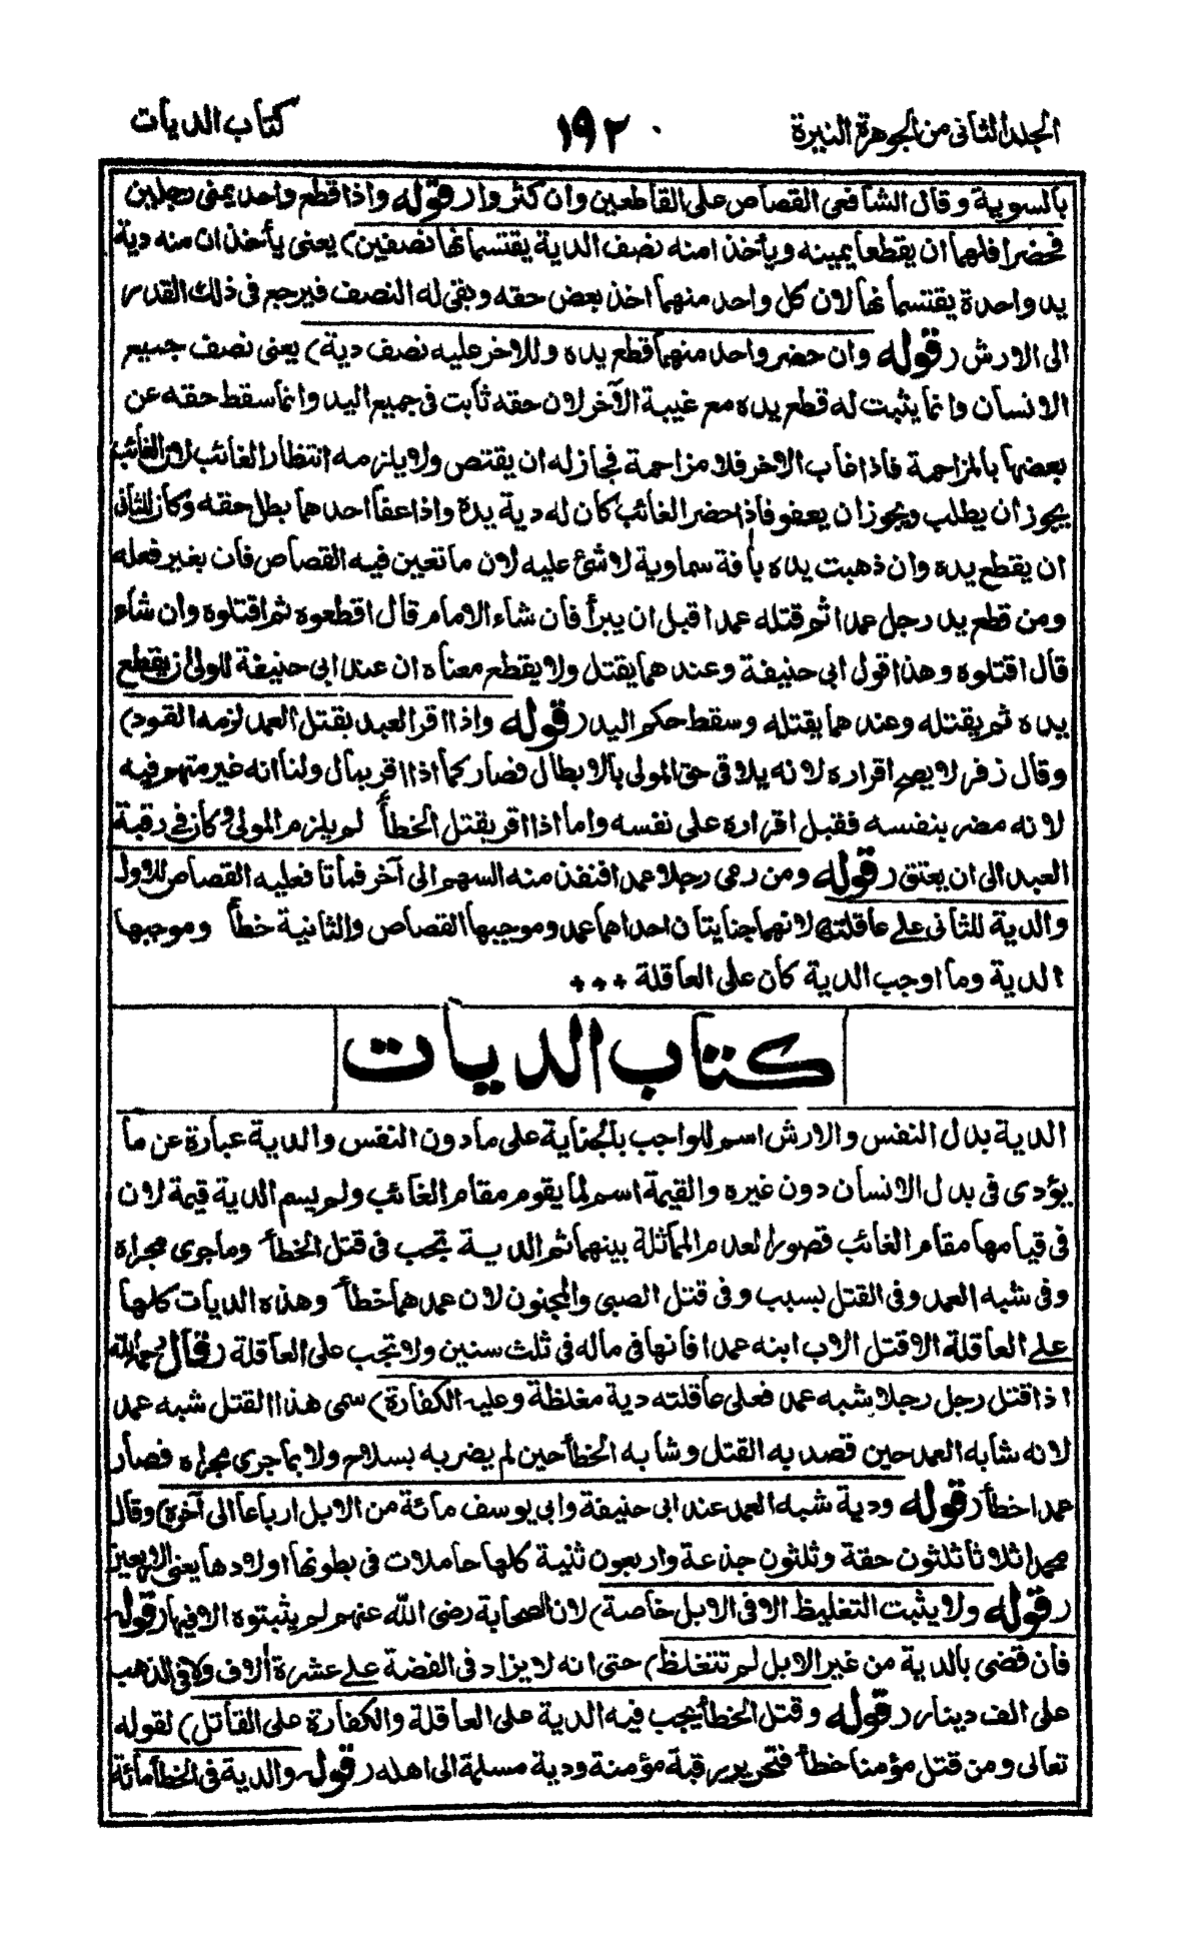 المجلد الثانى من الجوهرة النيرة
١٩٢
كتاب الديات
بالسوية وقال الشافعى القصاص على القاطعين وان كثروا (قوله واذا قطع واحد يمنى رجلين
فحضرا فلهما ان يقطعا يمينه ويأخذا منه نصف الدية يقتسمانها نصفين) يعنى يأخذان منه دية
يد واحدة يقتسمانها لان كل واحد منهما اخذ بعض حقه وبقى له النصف فيرجع فى ذلك القدر
الى الارش (قوله وان حضر واحد منهما قطع يده وللاخر عليه نصف دية) يعنى نصف جميع
الانسان وانما يثبت له قطع يده مع غيبة الآخر لان حقه ثابت فى جميع اليد وانما سقط حقه عن
بعضها بالمزاحمة فاذا غاب الاخر فلا مزاحمة فجاز له ان يقتص ولا يلزمه انتظار الغائب لان الغائب
يجوز ان يطلب ويجوز ان يعفو فاذا حضر الغائب كان له دية يده واذا عفا احدهما بطل حقه وكان للثانى
ان يقطع يده وان ذهبت يده بأفة سماوية لا شئ عليه لان ما تعين فيه القصاص فات بغير فعله
ومن قطع يد رجل عمدا ثم قتله عمدا قبل ان يبرأ فان شاء الامام قال اقطعوه ثم اقتلوه وان شاء
قال اقتلوه وهذا قول ابى حنيفة وعندهما يقتل ولا يقطع معناه ان عند ابى حنيفة للولى ان يقطع
يده ثم يقتله وعندهما يقتله وسقط حكم اليد (قوله واذا اقر العبد بقتل العمد لزمه القود)
وقال زفر لا يصح اقراره لانه يلاقى حق المولى بالابطال فصار كما اذا اقر بمال ولنا انه غير متهم فيه
لانه مضر بنفسه فقبل اقراره على نفسه واما اذا اقر بقتل الخطأ لم يلزم المولى وكان فى رقبة
العبد الى ان يعتق (قوله ومن رمى رجلا عمدا فنفذ منه السهم الى آخر فماتا فعليه القصاص للاول
والدية للثانى على عاقلته) لانهما جنايتان احداهما عمد وموجبها القصاص والثانية خطأ وموجبها
الدية وما اوجب الدية كان على العاقلة +++
كتاب الديات
الدية بدل النفس والارش اسم للواجب بالجناية على ما دون النفس والدية عبارة عن ما
يؤدى فى بدل الانسان دون غيره والقيمة اسم لما يقوم مقام الغائب ولم يسم الدية قيمة لان
فى قيامها مقام الغائب قصورا لعدم المماثلة بينهما ثم الدية تجب فى قتل الخطأ وما جرى مجراه
وفى شبه العمد وفى القتل بسبب وفى قتل الصبى والمجنون لان عمدهما خطأ وهذه الديات كلها
على العاقلة الا قتل الاب ابنه عمدا فانها فى ماله فى ثلث سنين ولا تجب على العاقلة (قال رحمه الله
اذا قتل رجل رجلا شبه عمد فعلى عاقلته دية مغلظة وعليه الكفارة) سمى هذا القتل شبه عمد
لانه شابه العمد حين قصد به القتل وشابه الخطأ حين لم يضربه بسلاح ولا بما جرى مجراه فصار
عمدا خطأ (قوله ودية شبه العمد عند ابى حنيفة وابى يوسف مائة من الابل ارباعا الى آخره) وقال
محمد اثلاثا ثلثون حقة وثلثون جذعة واربعون ثنية كلها حاملات فى بطونها اولادها يعنى الاربعين
(قوله ولا يثبت التغليظ الا فى الابل خاصة) لان الصحابة رضى الله عنهم لم يثبتوه الا فيها (قوله
فان قضى بالدية من غير الابل لم تتغلظ) حتى انه لا يزاد فى الفضة على عشرة آلاف ولا فى الذهب
على الف دينار (قوله وقتل الخطأ يجب فيه الدية على العاقلة والكفارة على القاتل) لقوله
تعالى ومن قتل مؤمنا خطأ فتحرير رقبة مؤمنة ودية مسلمة الى اهله (قوله والدية فى الخطأ مائة